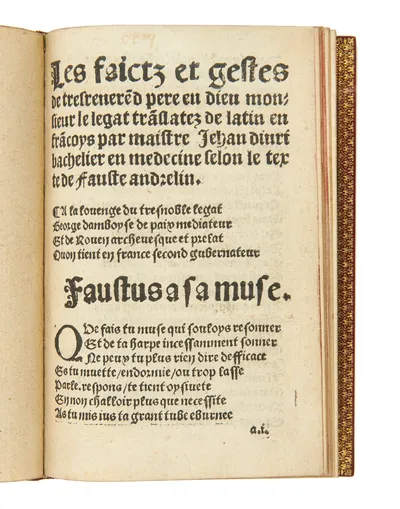 Les faictz et gestes
de tresreuerẽd pere en dieu mon⸗
sieur le legat trãslatez de latin en
frãcoys par maistre Jehan diuri
bachelier en medecine selon le tex
te de Fauste andrelin.
A la louenge du tresnoble legat
George damboyse de paix mediateur
Et de Rouen archeuesque et prelat
Quon tient en france second gubernateur
Faustus a sa muse.
QUe fais tu muse qui souloys resonner
Et de ta harpe incessamment sonner
Ne peuy tu plus rien dire defficace
Es tu muette / endormie / ou trop lasse
Parle. respons / te tient oysiuete
En non challoir plus que necessite
As tu mis ius ta grant tube eburnee
a.i.